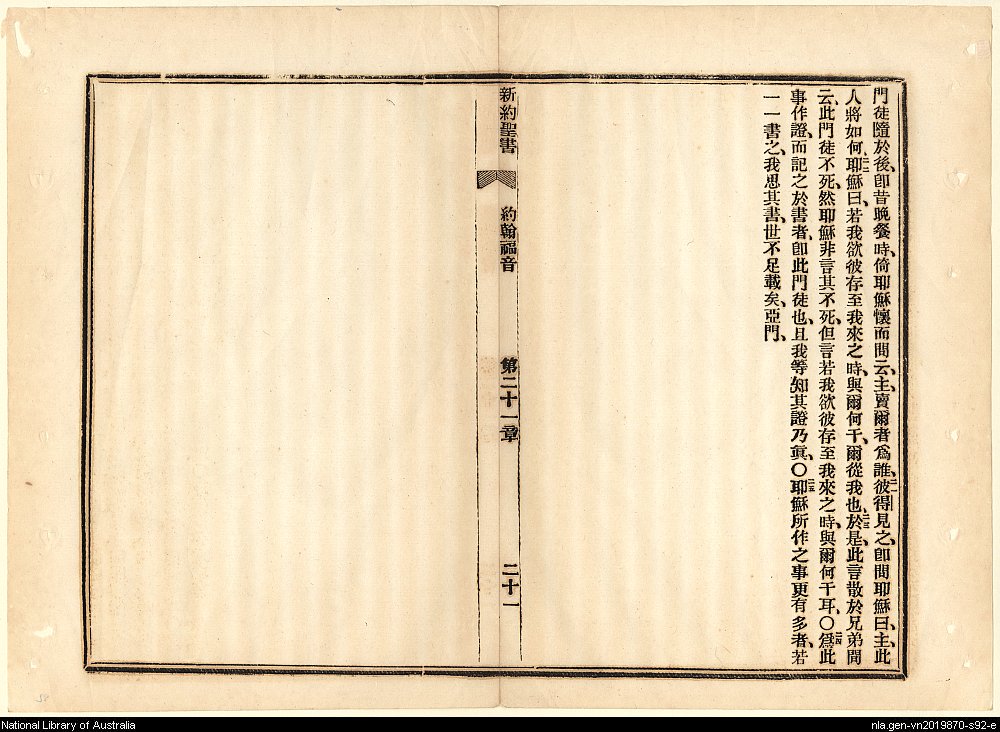 門徒隨於後、卽昔晚餐時、倚耶穌懷而問云、主、賣爾者爲誰、彼得見之、卽問耶穌曰、主、此
人將如何、耶穌曰、若我欲彼存至我來之時、與爾何干、爾從我也、於是、此言散於兄弟間
云、此門徒不死、然耶穌非言其不死、但言若我欲彼存至我來之時、與爾何干耳、〇爲此
事作證、而記之於書者、卽此門徒也、且我等知其證乃眞、〇耶穌所作之事更有多者、若
一一書之、我思其書、世不足載矣、亞門、
新約聖書 約翰福音 第二十一章 二十一
National Library of Australia
nla.gen-vn2019870-s92-e